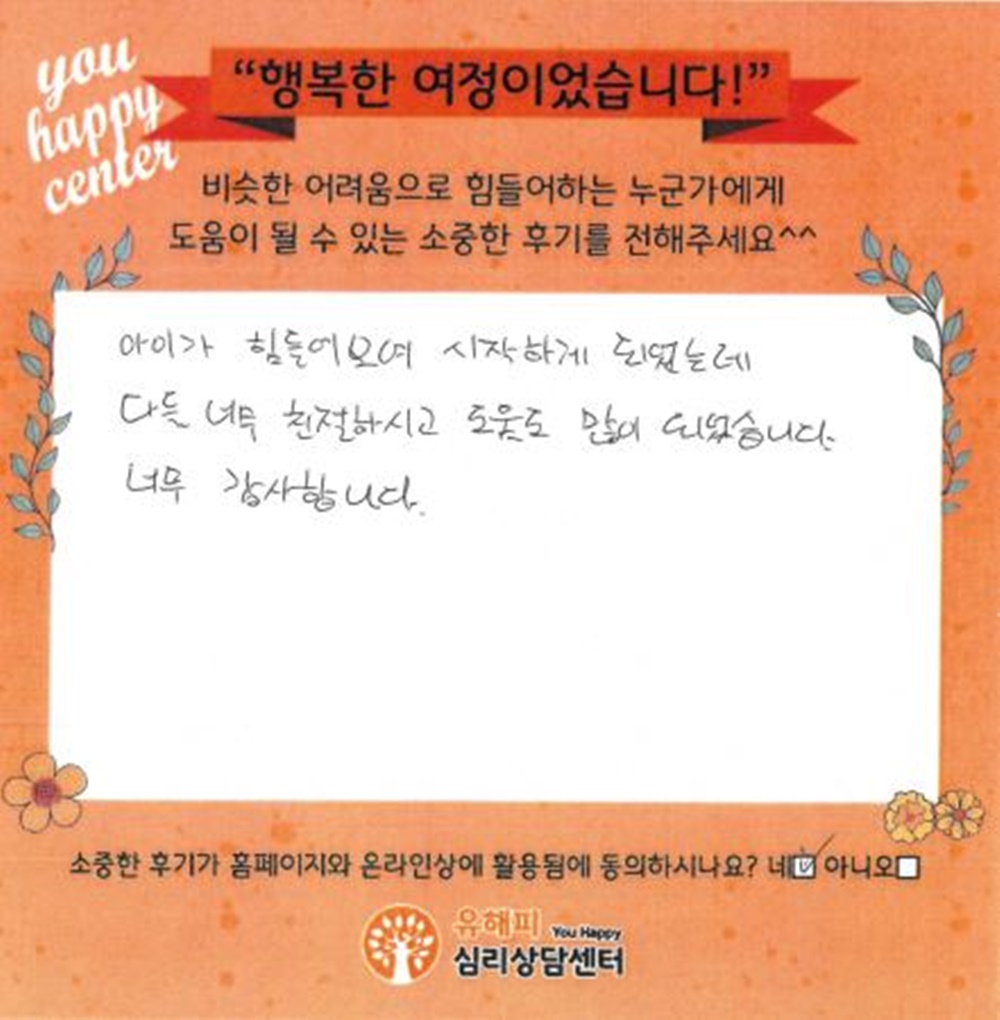 you
happy
center
“행복한 여정이었습니다!”
비슷한 어려움으로 힘들어하는 누군가에게
도움이 될 수 있는 소중한 후기를 전해주세요^^
아이가 힘들어보여 시작하게 되었는데
다들 너무 친절하시고 도움도 많이 되었습니다.
너무 감사합니다.
소중한 후기가 홈페이지와 온라인상에 활용됨에 동의하시나요? 네 아니오
유해피 You Happy
심리상담센터